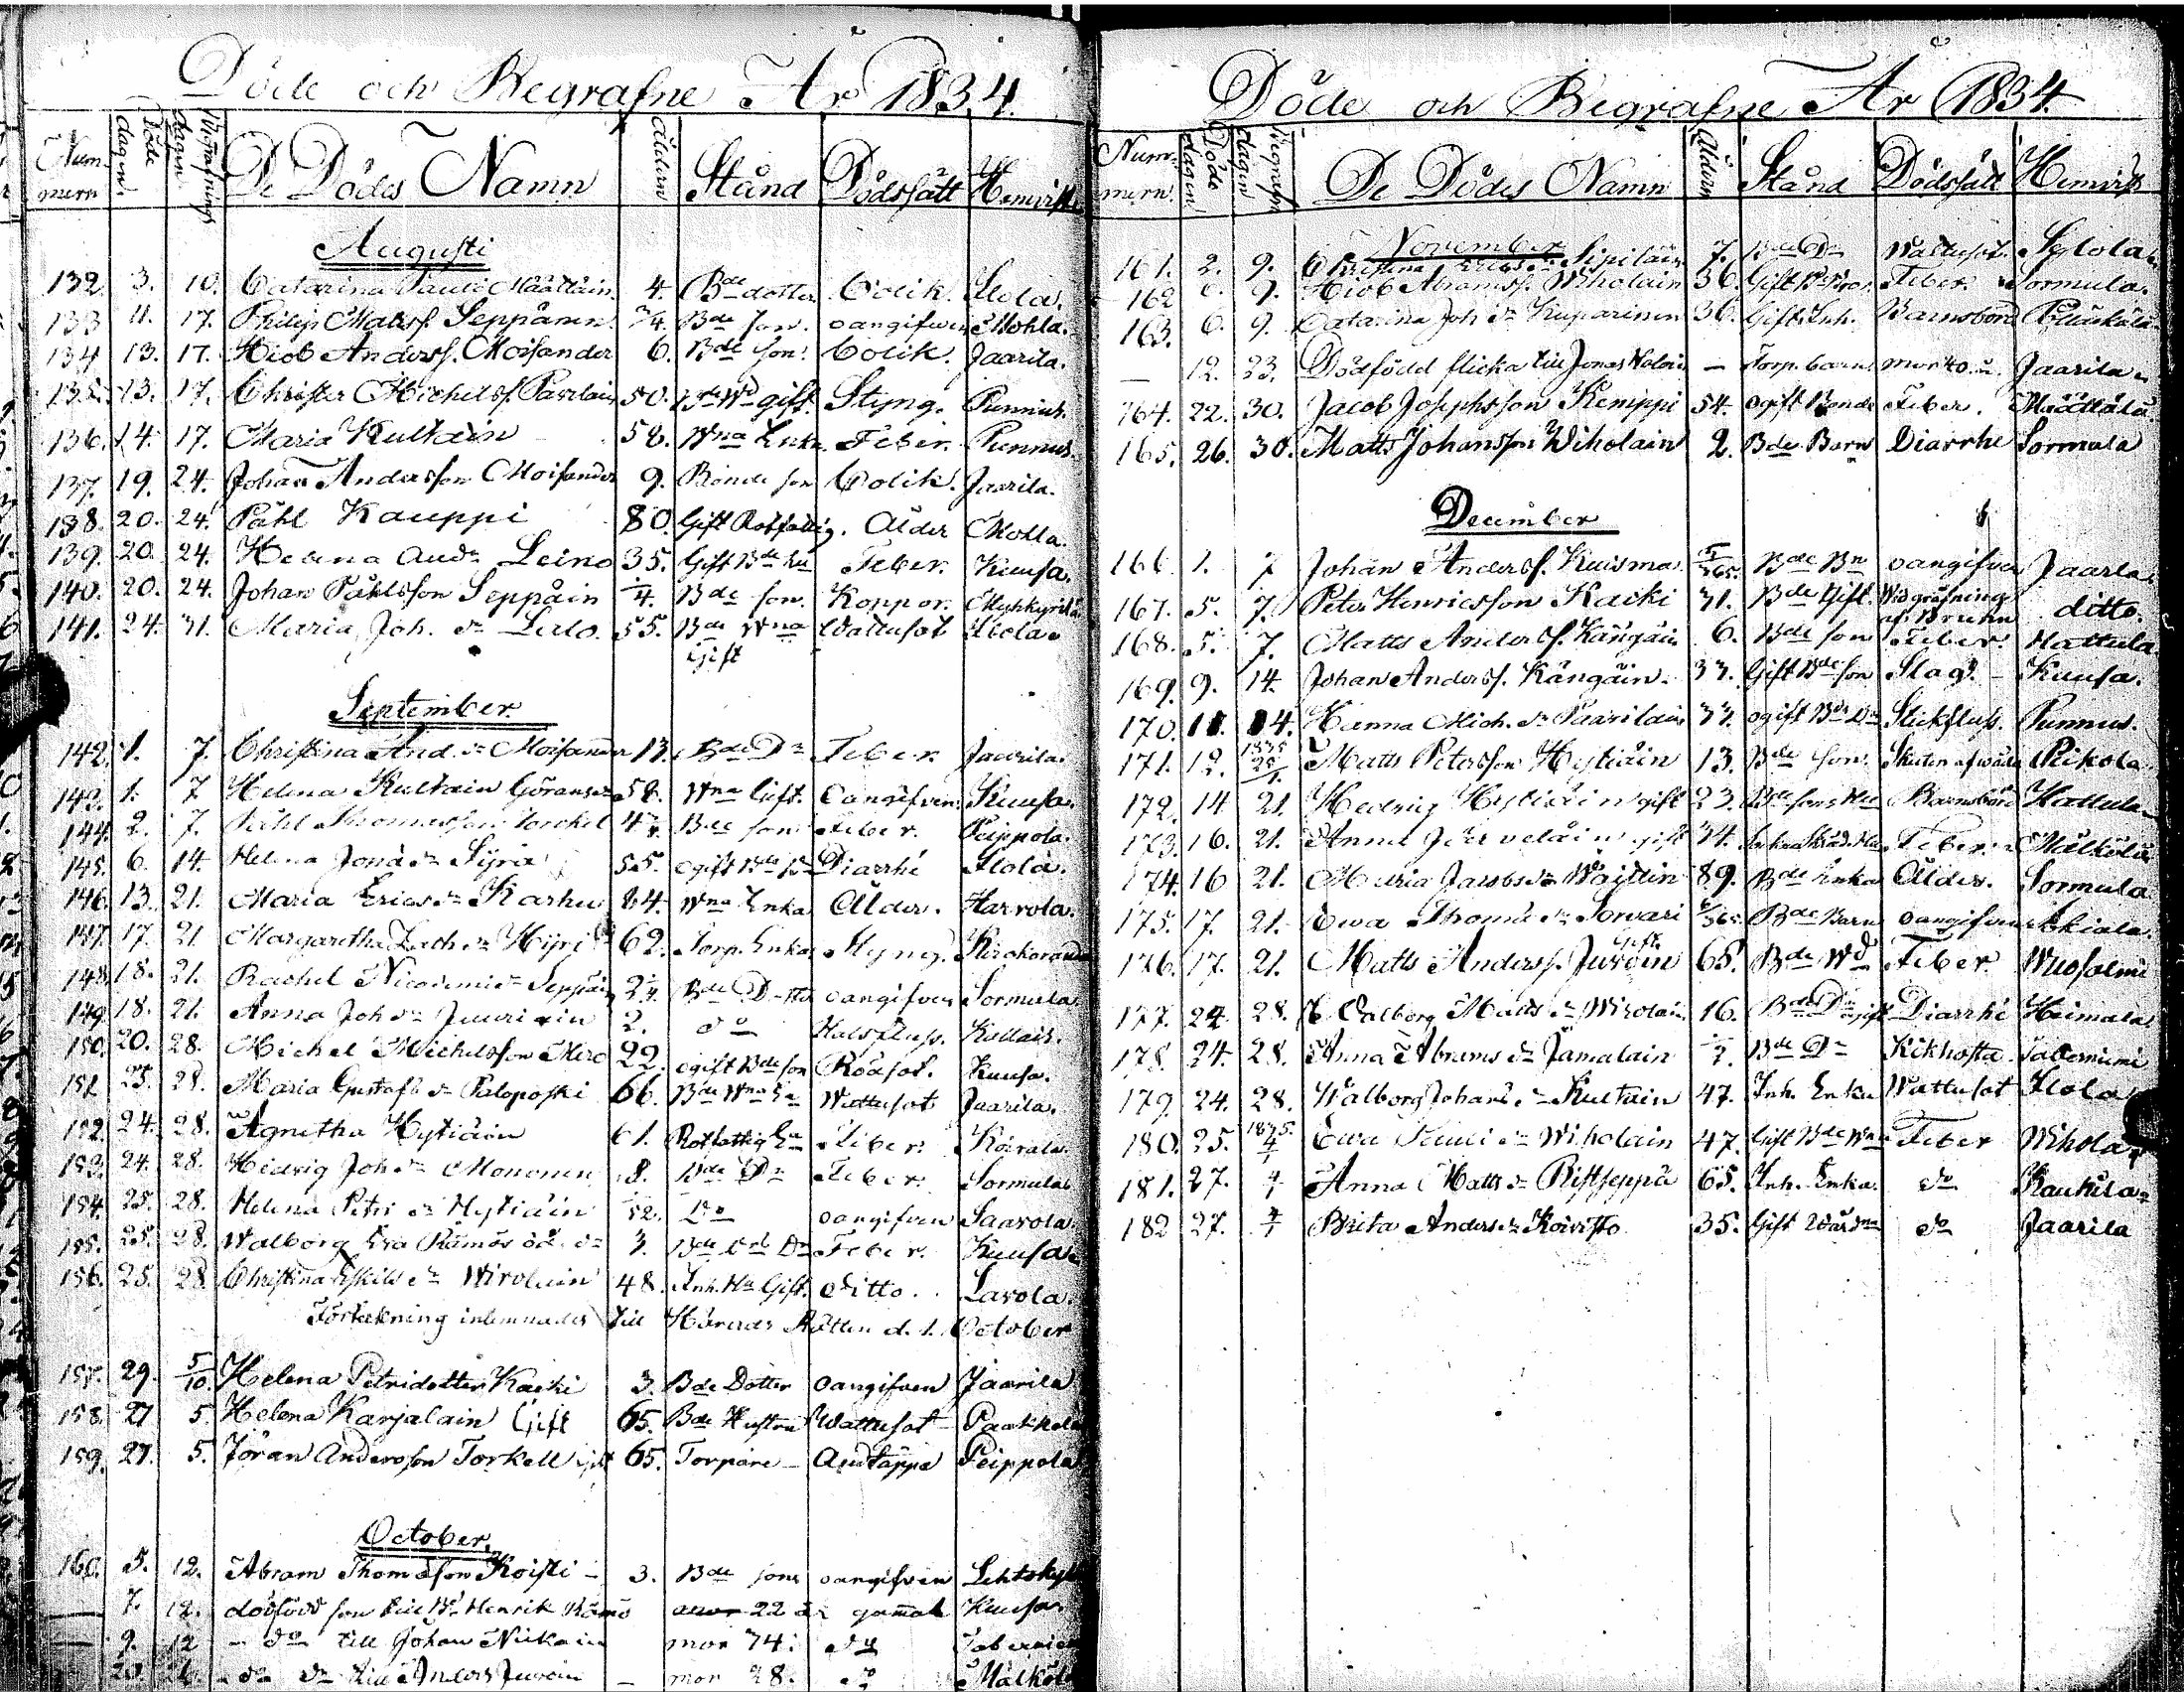 Döde och Begrafne År 1834.
Nummern Döde dagen Begrafnings dagen De Dödas Namn Åldern Stånd Dödssätt Hemvist
Augusti
132. 3. 10. Catarina Pauli Määttäin. 4. Bde dotter Colik. Ilola.
133 11. 17. Philip Matss. Seppänen. 3/4. Bde son. oangifven Mohla.
134 13. 17. Hiob Anderss. Moisander 6. Bde son. Colik. Jaarila.
135. 13. 17. Christer Michelss. Paarlain 50. Bde Wd gift. Styng. Punnus.
136. 14. 17. Maria Kultain 58. Wna Enka. Feber. Punnus.
137. 19. 24. Johan Andersson Moisander 9. Bonde son Colik. Jaarila.
138. 20. 24. Påhl Kauppi 80. Gift Rotfattig. Ålder Molla.
139. 20. 24. Helena And. dr Leino 35. Gift Bde Feber. Kuusa.
140. 20. 24. Johan Påhlsson Seppäin 4. Bde son. Koppor. Myhkyrilä
141. 24. 31. Maria Joh. dr Lalo. 55. Bde Wna Wattusot Ilola.
Gift
September.
142. 1. 7. Christina And. dr Moisander 13. Bde Dr Feber. Jaarila.
143. 1. 7 Helena Kultain Göransdr 58. Wna Gift. Oangifven. Kuusa.
144. 2. 7. Påhl Thomasson Torckel 4 Bde son Feber. Peippola.
145. 6. 14. Helena Jona dr Syriä 55. ogift Bde Diarrhé Ilola.
146. 13. 21. Maria Erics dr Karhu 84. Wna Enka Ålder. Harvola.
147. 17. 21. Margaretha Zach dr Hyri 62. Torp. Enka Styng. Kirckoranda
148. 18. 21. Rachel Nicodemi dr Seppäin 2 Bde D-tter oangifven Sormula.
149. 18. 21. Anna Joh dr Juuriain 2. do Halsfluss. Kollais.
150. 20. 28. Michel Michelsson Hiro 22. ogift Bde son Rödsot. Kuusa.
151. 23. 28. Maria Gustafs dr Paloposki 66. Bde Wna Wattusot Jaarila.
152. 24. 28. Agnetha Hytiäin 61. Rotfattig Feber. Kåirala.
153. 24. 28. Hedvig Joh dr Mononen 8. Bde Dr Feber. Sormula
154. 25. 28. Helena Petri dr Hytiäin 52. Do oangifven Saarola.
155. 25. 28. Walborg Eva Rämös 3. Bde Feber. Kuusa.
156. 25. 28. Christina Eskils dr Wirolain 48. Inh. Ha Gift. ditto. Lavola.
Förtekning inlemnades till Härads Rätten d. 1. October
157. 29. 5/10. Helena Petridotter Kaiki 3. Bde Dotter oangifven Jaarila
158. 27 5. Helena Karjalain Gift 65. Bde Hustru Wattusot Paakkola
159. 27. 5. Jöran Andersson Torkell gift 65. Torpare Andtäppa Peippola
October.
160. 5. 12. Abram Thomasson Koisti 3. Bde sons oangifven Lehtokylä
7. 12. dödfödd son till Bd. Henrik Rämö 22 år gamal Kuusa.
9. 12 do till Johan Nickain mor 74. do
20. 26. do dr till Anders Juvain mor 28. do Mälkölä
Döde och Begrafne År 1834.
Nummern. Döde dagen Begrafn. dagen De Dödas Namn Åldern Stånd Dödssätt Hemvist
November
161. 2. 9. Christina Erics dr Sipiläin 7. Bde Dr Wattusot. Ylola.
162 6. 9. Hiob Abramss. Wiholain 36. Gift Feber. Sormula.
163. 6. 9. Catarina Joh dr Kuparinen 36. Gift Inh. Barnsbörd Pölläkälä
12. 23. Dödfödd flicka till Jonas — Torp. barn mor 40. Jaarila.
164. 22. 30. Jacob Josephsson Kemppi 54. ogift Bonde Feber. Määttälä
165. 26. 30. Matts Johansson Wiholain 2. Bde Barn Diarrhe Sormula
December
166. 1. 7 Johan Anderss. Kuisma 5/365. Bde Bn oangifven Jaarila.
167. 5. 7. Peter Henricsson Kaiki 31. Bde Gift. Wid gräfning af Brunn ditto.
168. 5. 7. Matts Anderss. Kängäin 6. Bde son Feber. Hattula
169. 9. 14. Johan Anderss. Kängäin. 37. Gift Bde son Slag. Kuusa.
170. 11. 14. Hanna Mich. dr Paarilain 37. ogift Bde Dr Stickfluss. Punnus.
171. 12. 1835 25/1. Matts Petersson Hytiäin 13. Bde son. Skuten af våda Pikola.
172. 14 21. Hedvig Hytiäin gift 23. Bde sons Barnsbörd Hattula
173. 16. 21. Anna Jerveläin gift 34. Feber. Mälkölä
174. 16 21. Maria Jacobs dr Wäittin 89. Bde Enka Ålder. Sormula.
175. 17. 21. Ewa Thomä dr Sorvari 6/365. Bde Barn oangifven
176. 17. 21. Matts Anderss. Juvain Gift. 65. Bde Wd Feber. Wuosalmi
177. 24. 28. Walborg Matts dr Wirolain 16. Bde Dr ogift Diarrhé Heimala
178. 24. 28. Anna Abrams dr Jamalain Bde Dr Kikhosta
179. 24. 28. Walborg Johans dr Kultain 47. Inh. Enka Wattusot Ilola
180. 25. 1835. 4/1 Ewa Pauli dr Wiholain 47. Gift Bde Wna Feber Wihola.
181. 27. 4/1 Anna Matts dr Ristseppä 65. Inh. Enka. do Kaukila
182 27. 4/1 Brita Anders dr Koivisto 35. Gift do Jaarila